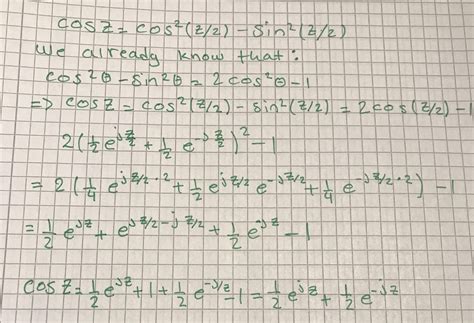 cos z = cos²(z/2) - sin²(z/2)
We already know that:
cos²θ - sin²θ = 2cos²θ - 1
=> cos z = cos²(z/2) - sin²(z/2) = 2cos(z/2) - 1
2(½e^{j z/2} + ½e^{-j z/2})² - 1
= 2(¼ e^{j z/2·2} + ½ e^{j z/2} e^{-j z/2} + ¼ e^{-j z/2·2}) - 1
= ½ e^{jz} + e^{j z/2 - j z/2} + ½ e^{-jz} - 1
cos z = ½ e^{jz} + 1 + ½ e^{-jz} - 1 = ½ e^{jz} + ½ e^{-jz}